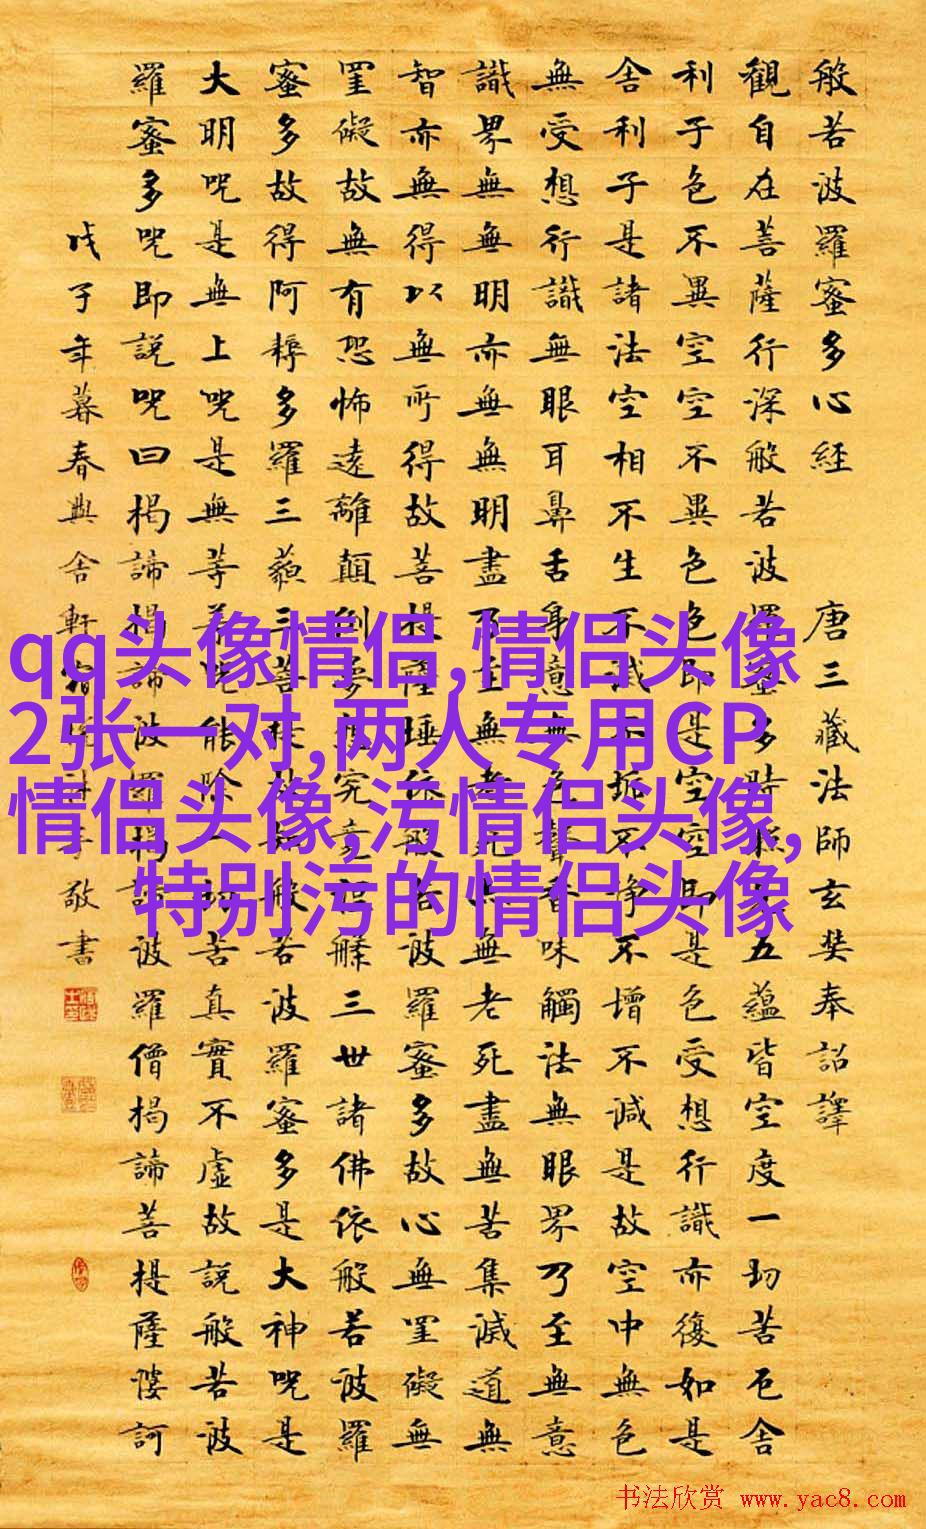 般若波羅蜜多心経 唐三藏法師玄奘奉詔譯
觀自在菩薩行深般若波羅蜜多時照見五蘊皆空度一切苦厄舍
利子色不異空空不異色色即是空空即是色受想行識亦復如是
舍利子是諸法空相不生不滅不垢不淨不增不減是故空中無色
無受想行識無眼耳鼻舌身意無色聲香味觸法無眼界乃至無意
識界無無明亦無無明盡乃至無老死亦無老死盡無苦集滅道無
智亦無得以無所得故菩提薩埵依般若波羅蜜多故心無罣礙無
罣礙故無有恐怖遠離顛倒夢想究竟涅槃三世諸佛依般若波羅
蜜多故得阿耨多羅三藐三菩提故知般若波羅蜜多是大神咒是
大明咒是無上咒是無等等咒能除一切苦真實不虛故說般若波
羅蜜多咒即說咒曰揭諦揭諦波羅揭諦波羅僧揭諦菩提薩婆訶
戊子年暮春興舍軒子敬書
qq头像情侣,情侣头像
2张一对,两人专用CP
情侣头像,污情侣头像,
特别污的情侣头像
书法欣赏 www.yac8.com